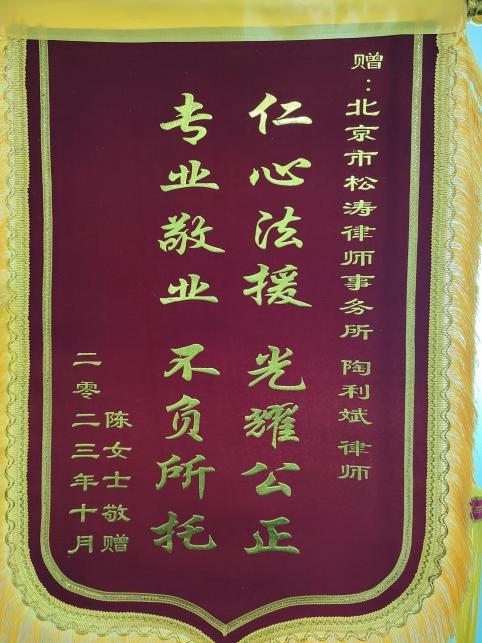 赠：北京市松涛律师事务所 陶利斌 律师
仁心法援 光耀公正
专业敬业 不负所托
陈女士敬赠
二零二三年十月